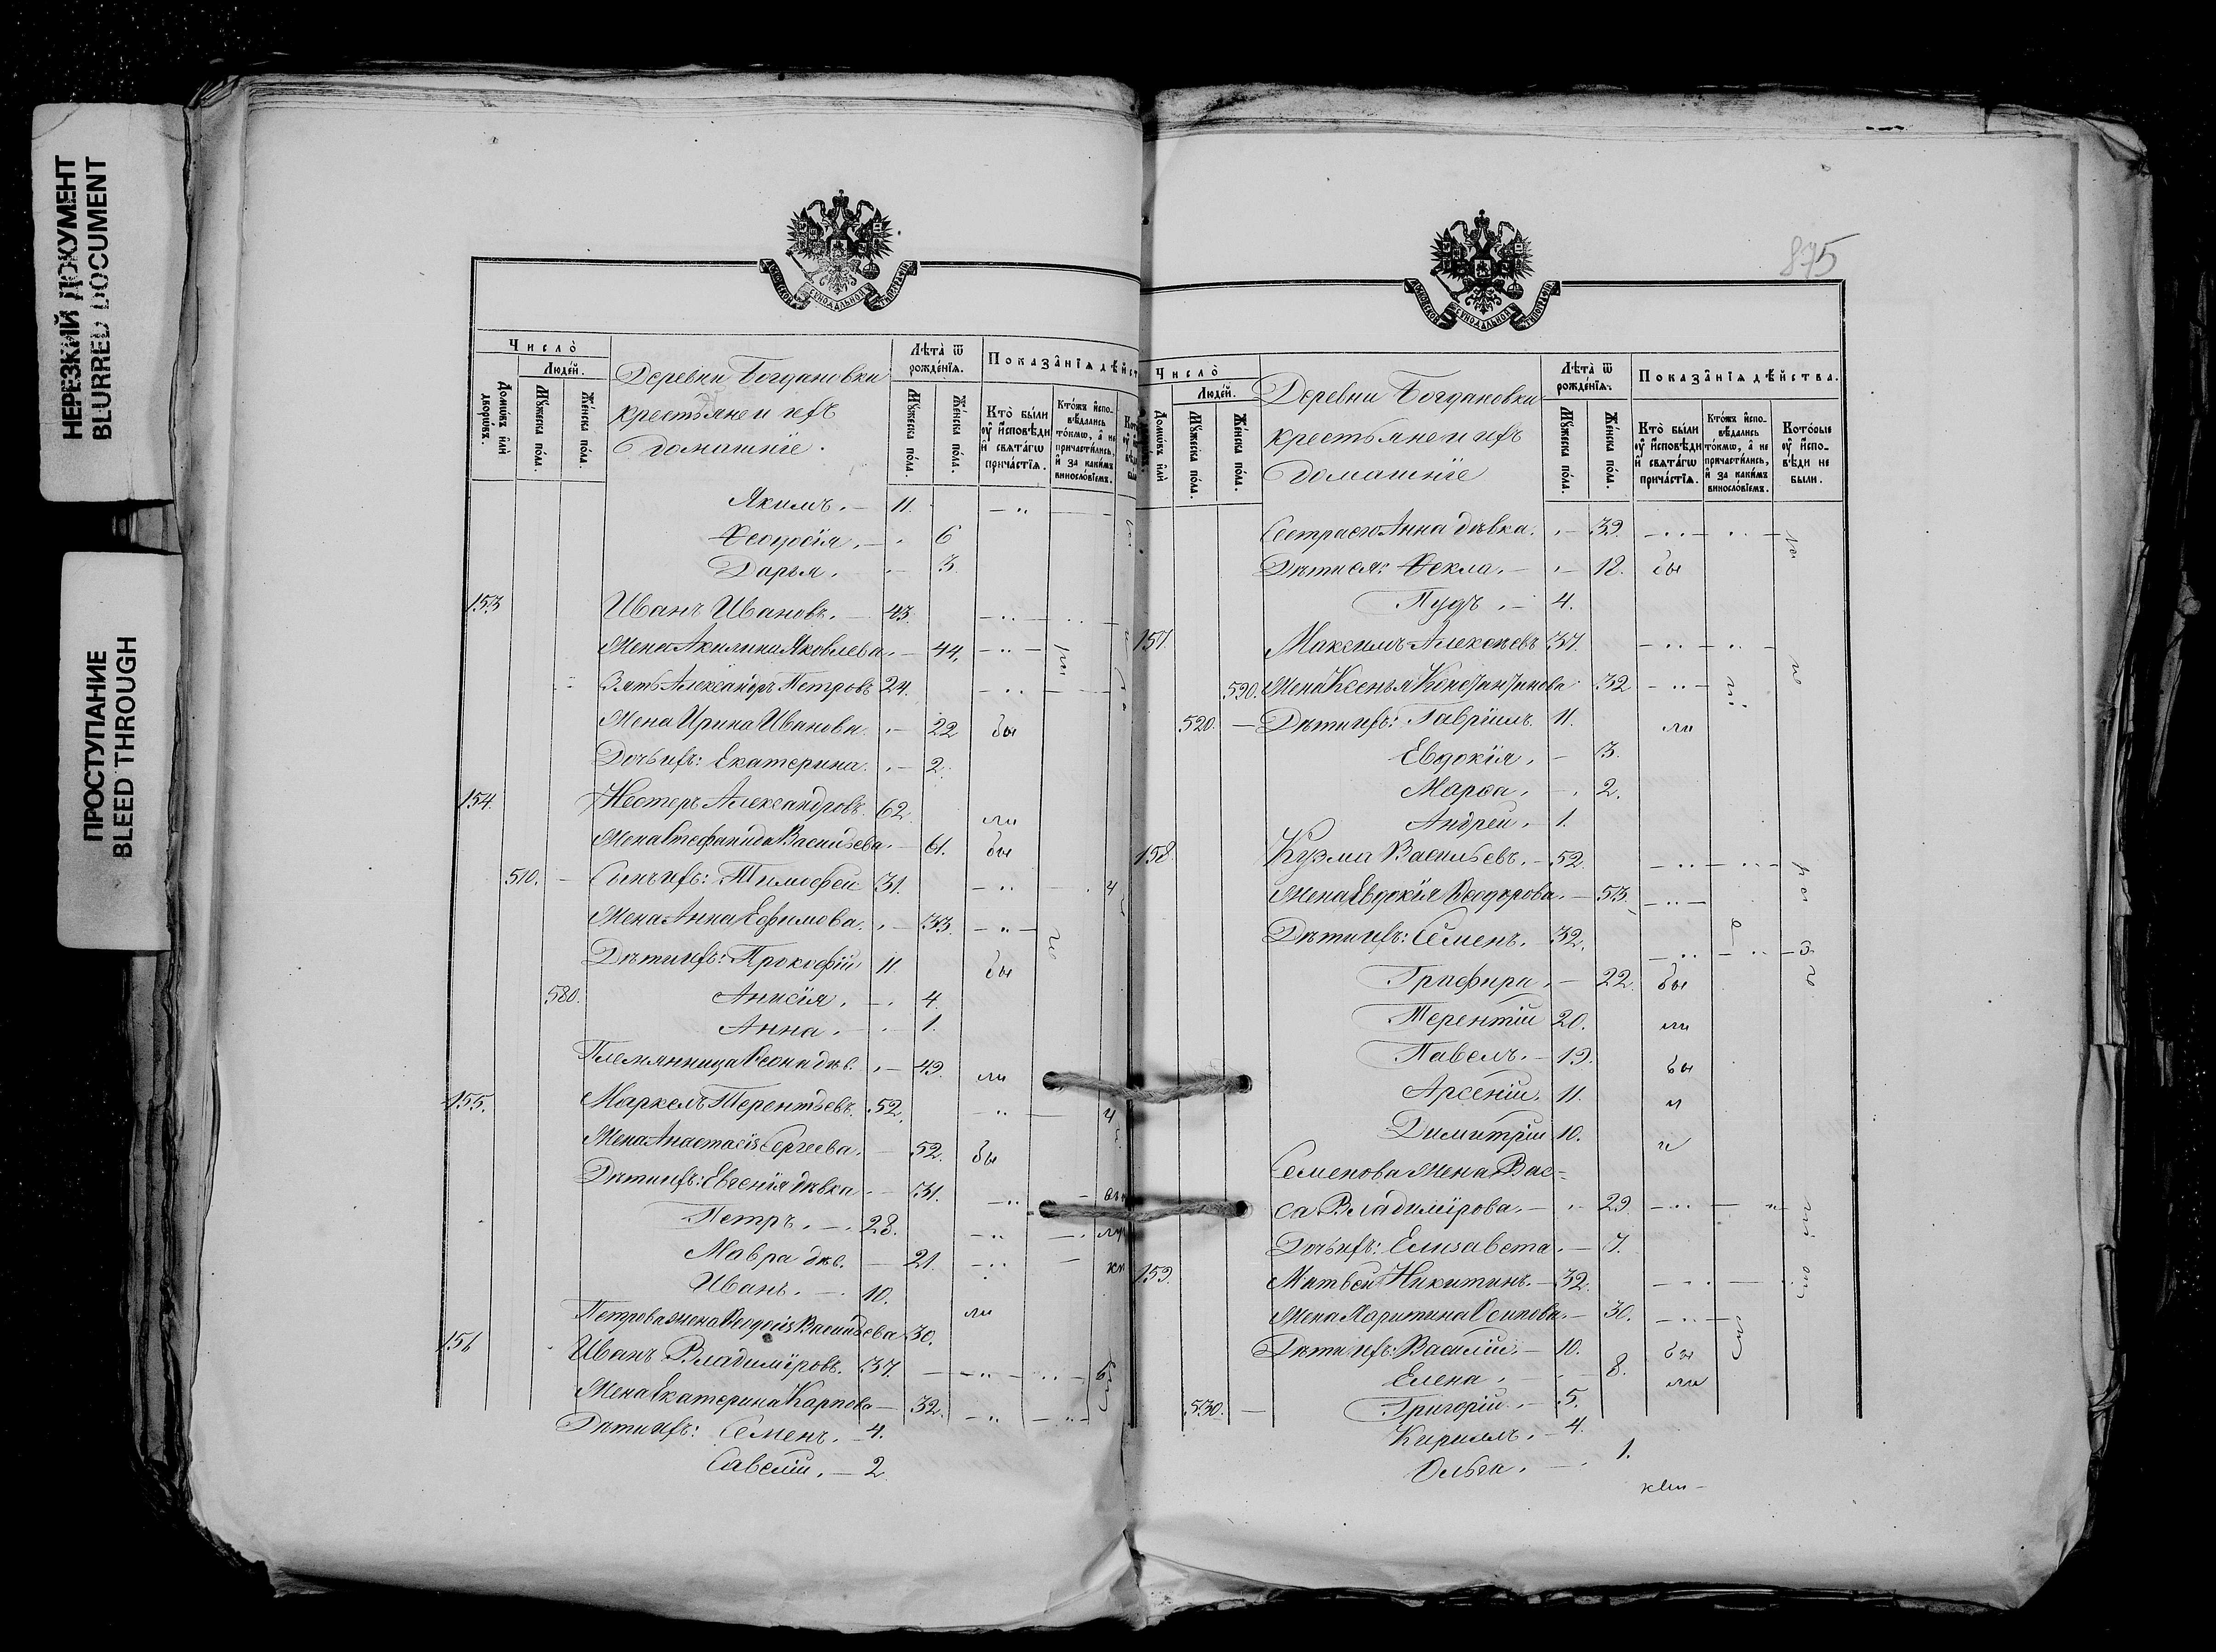 НЕРЕЗКИЙ ДОКУМЕНТ
BLURRED DOCUMENT
ПРОСТУПАНИЕ
BLEED THROUGH
МОСКОВСКОЙ СѴНОДАЛЬНОЙ ТИПОГРАФІИ.
Число̀
Люде́й.
Домѡ́въ и҆лѝ дворѡ́въ.
Мꙋ́жеска по́ла.
Же́нска по́ла.
Деревни Богдановки
крестьяне и ихъ
домашніе.
Лѣ́та ѿ рожде́нїѧ.
Мꙋ́жеска по́ла.
Же́нска по́ла.
Показа̑нїѧ дѣ́йст
Кто̀ бы́ли ᲂу҆ и҆́сповѣди и҆ свѧта́гѡ прича́стїѧ.
Кто́жъ и҆спо-вѣ́дались то́кмѡ, а҆ не причасти́лись, и҆ за каки́мъ виносло́вїемъ.
Якимъ. — 11.
Ѳеодосія. — 6
Дарья. — 3.
153 Иванъ Ивановъ. — 43.
Жена Акилина Яковлева. — 44.
Зять Александръ Петровъ 24.
Жена Ирина Иванова. — 22 бы
Дочь ихъ: Екатерина. — 2.
154. Нестеръ Александровъ. 62. ли
Жена Стефанида Васильева. — 61. бы
510. — Сынъ ихъ: Тимофей 31.
Жена Анна Ефимова. — 33.
Дѣти ихъ: Прокофій 11. бы
580. Анисія. — 4.
Анна. — 1.
Племянница Ѳеона дѣв. — 49. ли
155. Маркелъ Терентьевъ. 52.
Жена Анастасія Сергеева. — 52. бы
Дѣти ихъ: Евгенія дѣвка — 31.
Петръ. — 28.
Мавра дѣв. — 21.
Иванъ. — 10. ли
Петрова жена Ѳеодосія Васильева 30.
156 Иванъ Владиміровъ. 37.
Жена Екатерина Карпова — 32.
Дѣти ихъ: Семенъ. — 4.
Савелій. — 2.
875
МОСКОВСКОЙ СѴНОДАЛЬНОЙ ТИПОГРАФІИ.
Число̀
Люде́й.
Домѡ́въ и҆лѝ
Мꙋ́жеска по́ла.
Же́нска по́ла.
Деревни Богдановки
крестьяне и ихъ
домашніе
Лѣ́та ѿ рожде́нїѧ.
Мꙋ́жеска по́ла.
Же́нска по́ла.
Показа̑нїѧ дѣ́йства.
Кто̀ бы́ли ᲂу҆ и҆́сповѣди и҆ свѧта́гѡ прича́стїѧ.
Кто́жъ и҆спо-вѣ́дались то́кмѡ, а҆ не причасти́лись, и҆ за каки́мъ виносло́вїемъ.
Кото́рые ᲂу҆ и҆́спо-вѣди не бы́ли.
Сестра его Анна дѣвка. — 39.
Дѣти ея: Ѳекла. — 12. бы
Пудъ. — 4.
157. Максимъ Алексѣевъ 37.
590. Жена Ксенья Константинова 32
520. — Дѣти ихъ: Гавріилъ 11. ли
Евдокія. — 3.
Марѳа. — 2.
Андрей. — 1.
158. Кузма Васильевъ. — 52.
Жена Евдокія Ѳеодорова. — 53.
Дѣти ихъ: Семенъ. 32.
Глафира. — 22. бы
Терентій 20. ли
Павелъ. — 19. бы
Арсеній. 11.
Димитрій 10.
Семенова жена Вас-
са Владимірова. — 29.
Дочь ихъ: Елисавета. — 7.
159. Матвей Никитинъ. — 32.
Жена Харитина Осипова. — 30.
Дѣти ихъ: Василій. — 10. бы
Елена. — 8. ли
530. — Григорій. — 5.
Кириллъ. — 4.
Ольга. — 1.